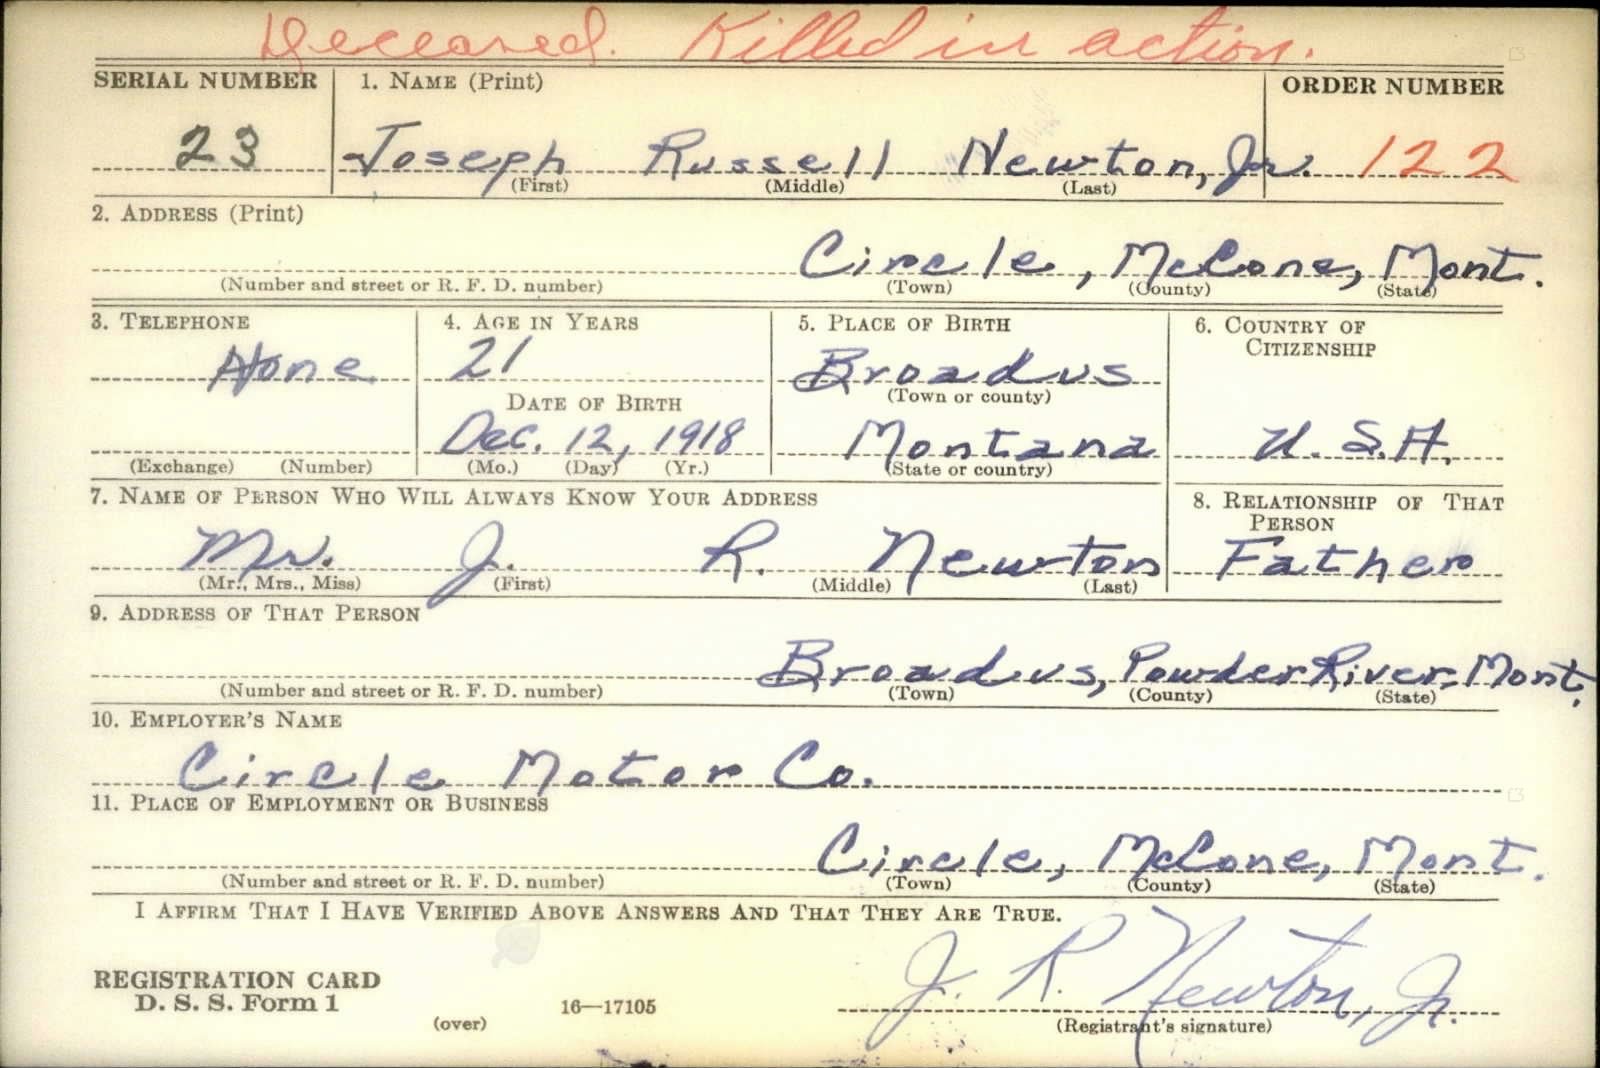 Deceased. Killed in action.
SERIAL NUMBER 1. NAME (Print) ORDER NUMBER
23 Joseph Russell Newton, Jr. 122
(First) (Middle) (Last)
2. ADDRESS (Print)
Circle, McCone, Mont.
(Number and street or R. F. D. number) (Town) (County) (State)
3. TELEPHONE 4. AGE IN YEARS 5. PLACE OF BIRTH 6. COUNTRY OF
CITIZENSHIP
None 21 Broadus
(Town or county)
DATE OF BIRTH
Dec. 12, 1918 Montana U. S. A.
(Exchange) (Number) (Mo.) (Day) (Yr.) (State or country)
7. NAME OF PERSON WHO WILL ALWAYS KNOW YOUR ADDRESS 8. RELATIONSHIP OF THAT
PERSON
Mr. J. R. Newton Father
(Mr., Mrs., Miss) (First) (Middle) (Last)
9. ADDRESS OF THAT PERSON
Broadus, Powder River, Mont.
(Number and street or R. F. D. number) (Town) (County) (State)
10. EMPLOYER'S NAME
Circle Motor Co.
11. PLACE OF EMPLOYMENT OR BUSINESS
Circle, McCone, Mont.
(Number and street or R. F. D. number) (Town) (County) (State)
I AFFIRM THAT I HAVE VERIFIED ABOVE ANSWERS AND THAT THEY ARE TRUE.
REGISTRATION CARD
D. S. S. Form 1 16—17105 J. R. Newton, Jr.
(over) (Registrant's signature)